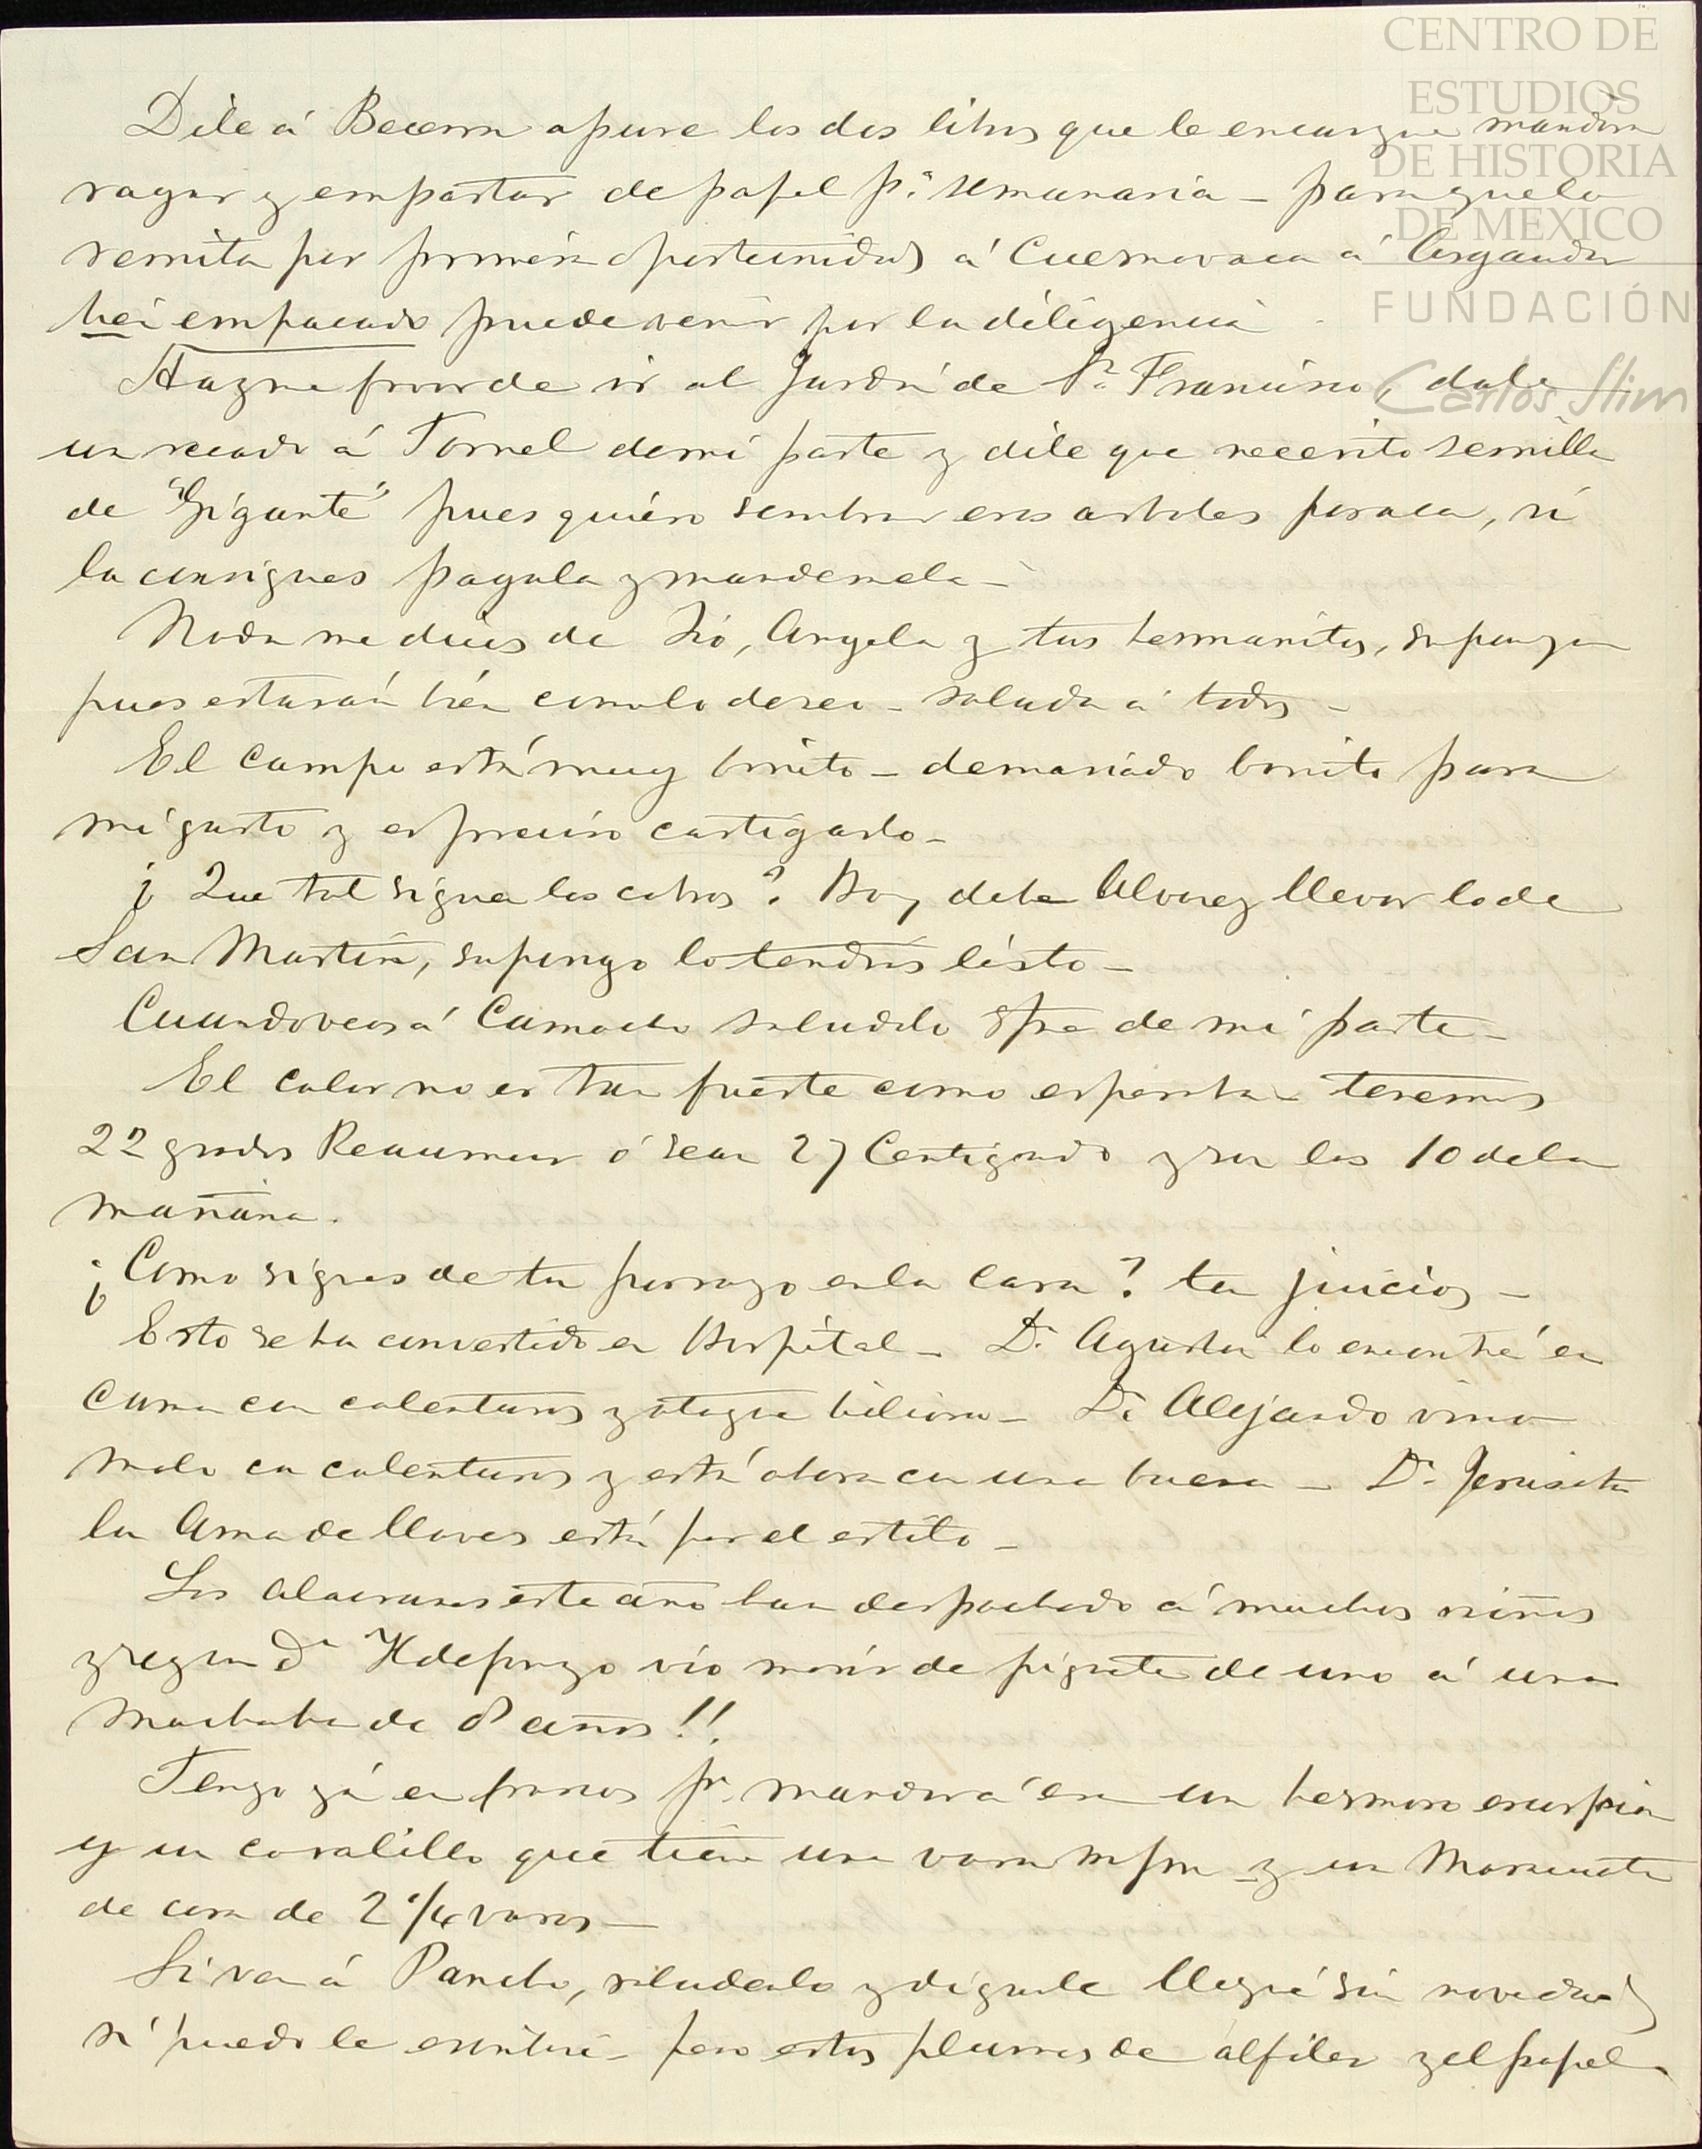 CENTRO DE
ESTUDIOS
DE HISTORIA
DE MEXICO
FUNDACIÓN
Carlos Slim
Dile á Becerra apure los dos libros que le encargue mandara
rayar y empastar de papel pª semanaria - para que lo
remita por primera oportunidad á Cuernavaca á Arganda
bien empacado puede venir por la diligencia.
Hazme favor de ir al Jardin de Sn. Francisco, dale
un recado á Tornel de mi parte y dile que necesito semilla
de "Gigante" pues quiero sembrar esos arboles por aca, si
la consigues pagala y mandemela -
Nada me dices de Angela y tus hermanitos, supongo
pues estarán bien como lo deseo - saluda á todos -
El campo está muy bonito - demasiado bonito para
mi gusto y es preciso castigarlo -
¿Que tal siguen los cobros? Hoy debe Alvarez llevar lo de
San Martin, supongo lo tendrás listo -
Cuando veas á Camacho saludalo spre de mi parte -
El calor no es tan fuerte como esperaba tenemos
22 grados Reaumur ó sean 27 Centigrado y son las 10 de la
mañana.
¿Como sigues de tu porrazo en la cara? ten juicios -
Esto se ha convertido en Hospital - Dn. Agustin lo encontré en
cama con calenturas y ataque bilioso - Dn. Alejandro vino
malo con calenturas y está ahora con una buena - Da. Jesusita
la Ama de llaves está por el estilo -
Los alacranes este año han despachado á muchos niños
y segun Dn Yldefonzo vio morir de piquete de uno á una
muchacha de 8 años!!
Tengo yá en frascos pa. mandar á esa un hermoso escorpion
y un coralillo que tiene una vara mfm y un Mazacuate
de casa de 2 1/4 varas -
Si ven á Pancho, saludenlo y diganle llegué sin novedad
si puedo le escribiré - pero estas plumas de alfiler y el papel